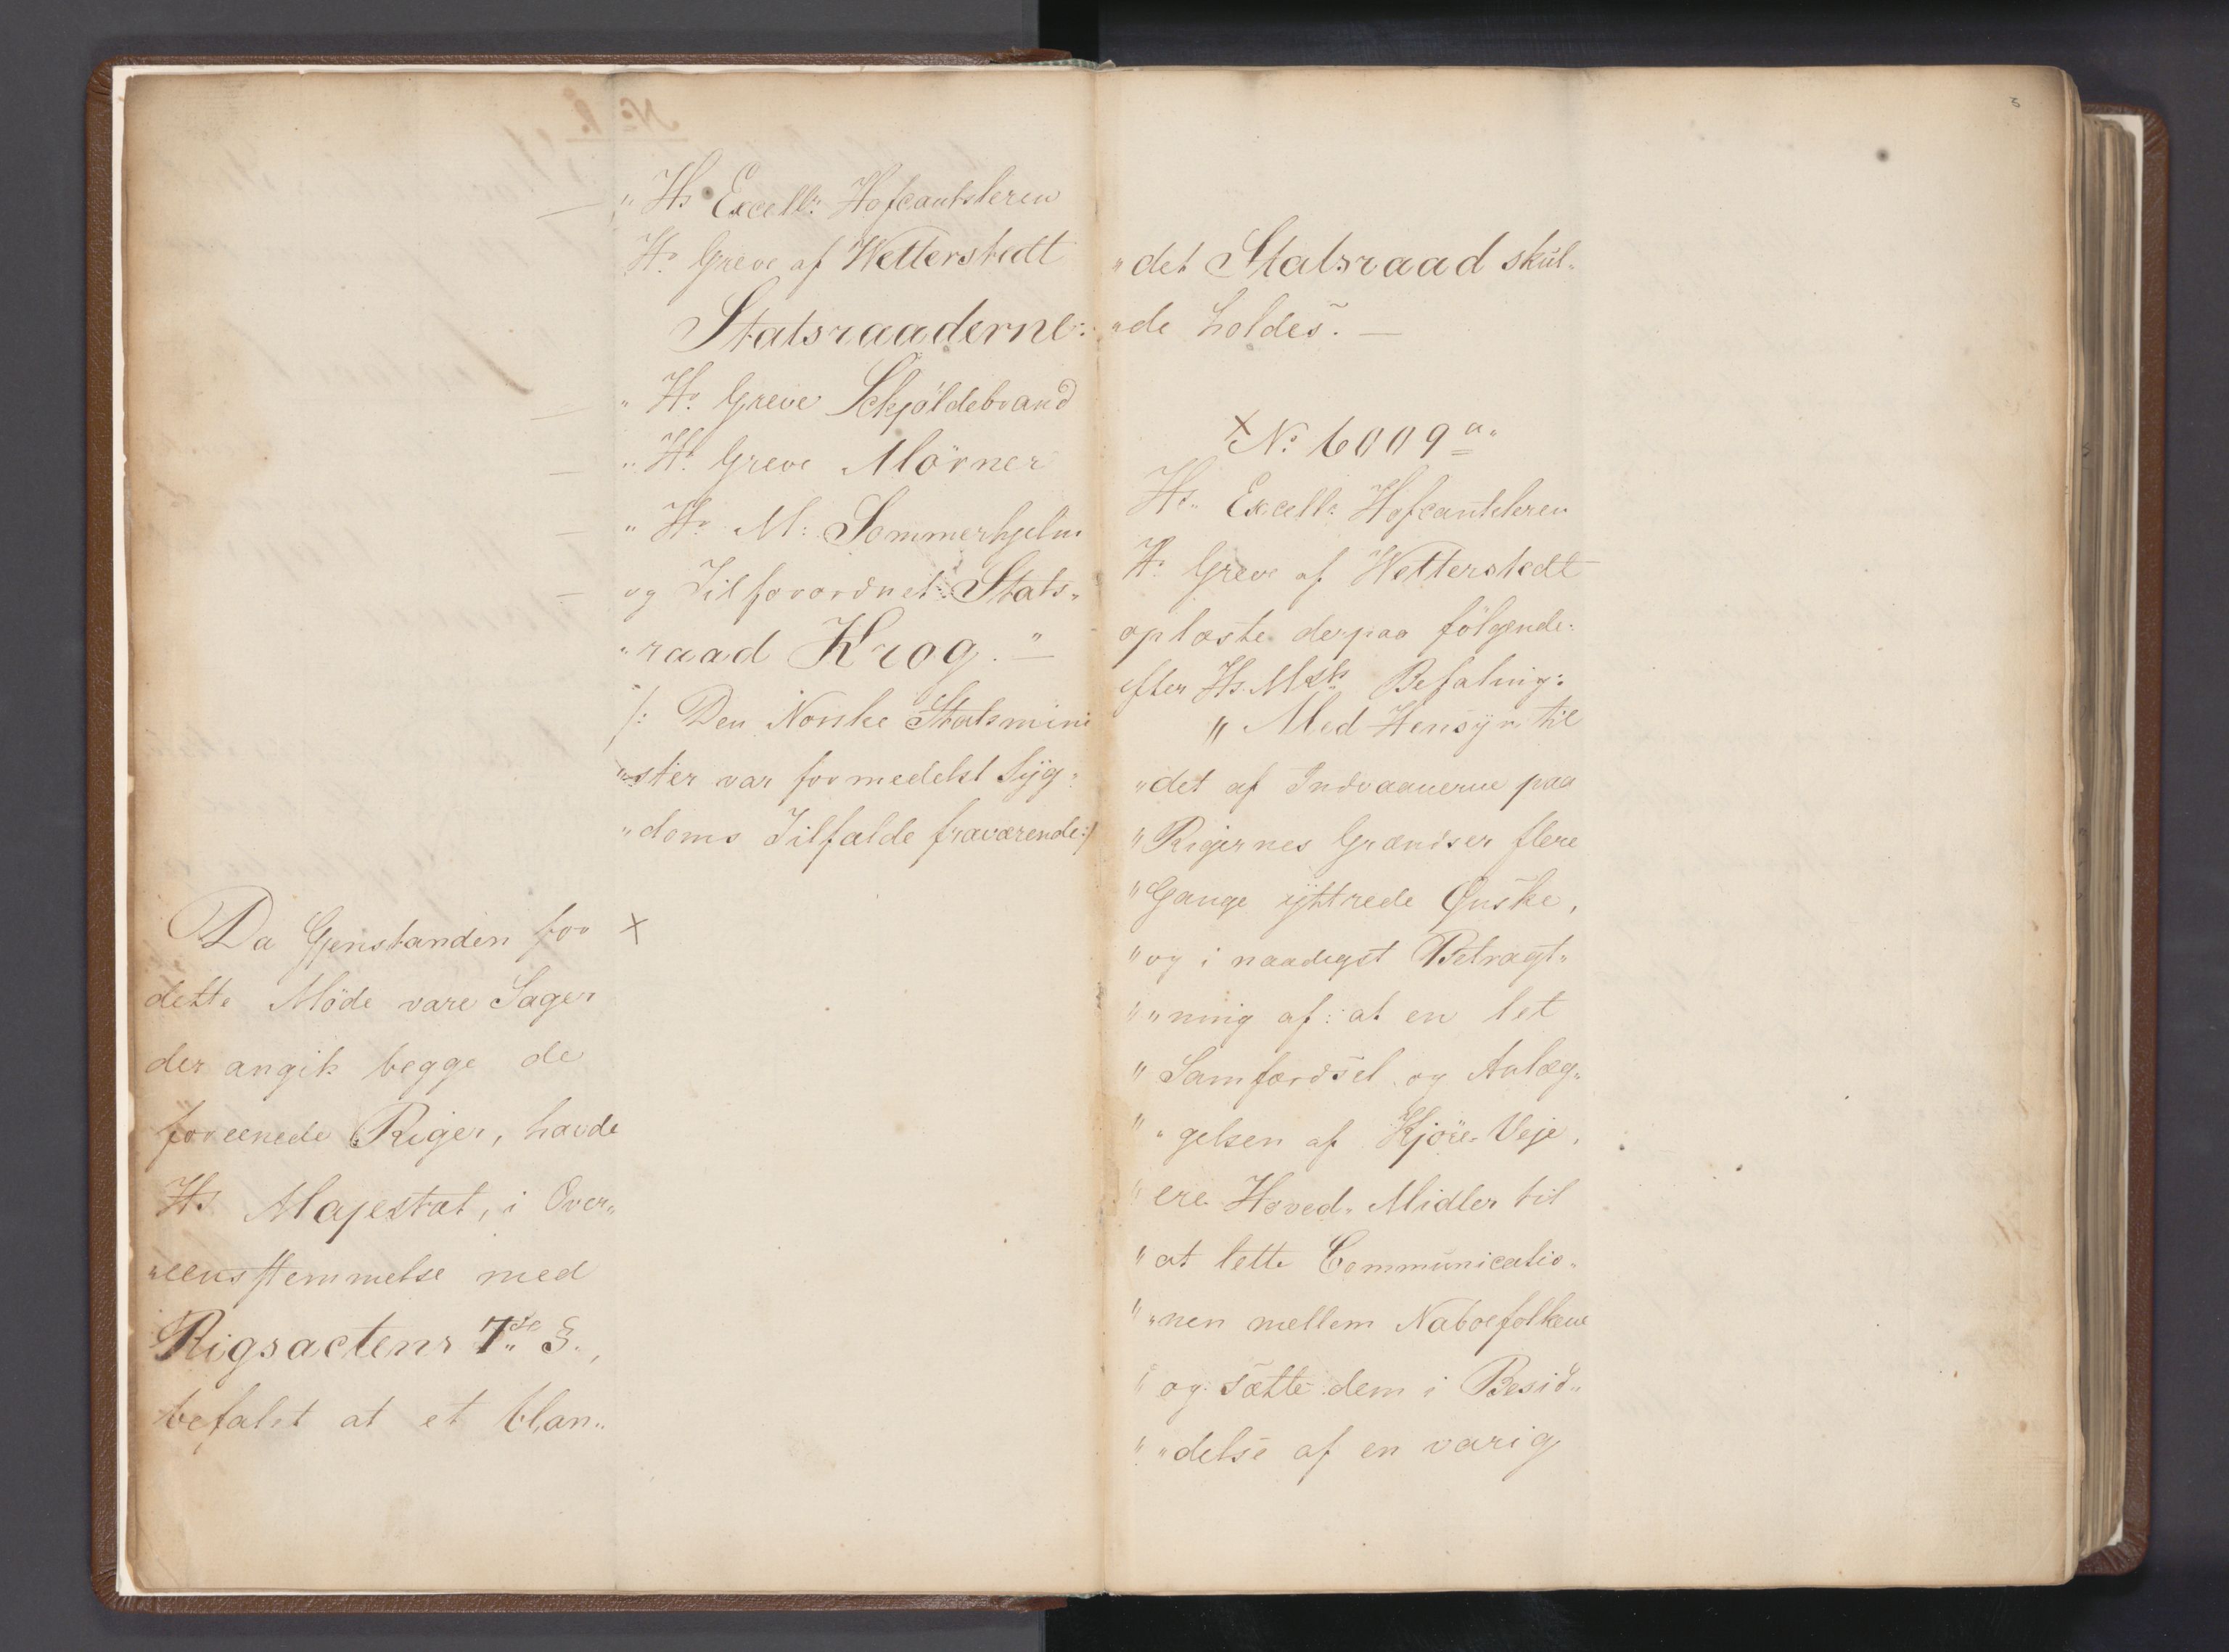 " Hs Excell: Hofcantsleren
Hr. Greve af Wetterstedt
Statsraaderne:
" Hr. Greve Schjöldebrand
" Hr. Greve Mörner
" Hr. M: Sommerhjelm
og Tilforordnet Stats"
"raad Krog. "
/: Den Norske Statsmini
"ster var formedelst Syg"
"doms Tilfalde fraværende:/
Da Gjenstanden for x
dette Möde vare Sager
der angik begge de
foreenede Riger, havde
Hs Majestæt, i Over"
"eensstemmelse med
Rigsactens 7de §.,
befalet at et blan"
5
"det Statsraad skul"
"de holdes. —
x No. 6009 a"
Hs. Excell: Hofcantsleren
Hr. Greve af Wetterstedt
oplæste derpaa fölgende
efter Hs. Msts Befaling:
" Med Hensyn til
"det af Indvaanerne paa
"Rigernes Grændser flere
"Gange yttrede Ønske,
"og i naadigst Betragt"
" "ning af: at en let
" Samfærdsel og Anlæg"
" "gelsen af Kjöre-Veje,
" ere Hoved-Midler til
" at lette Communicatio"
" "nen mellem Naboefolkene
" og sætte dem i Besid"
" "delse af en varig